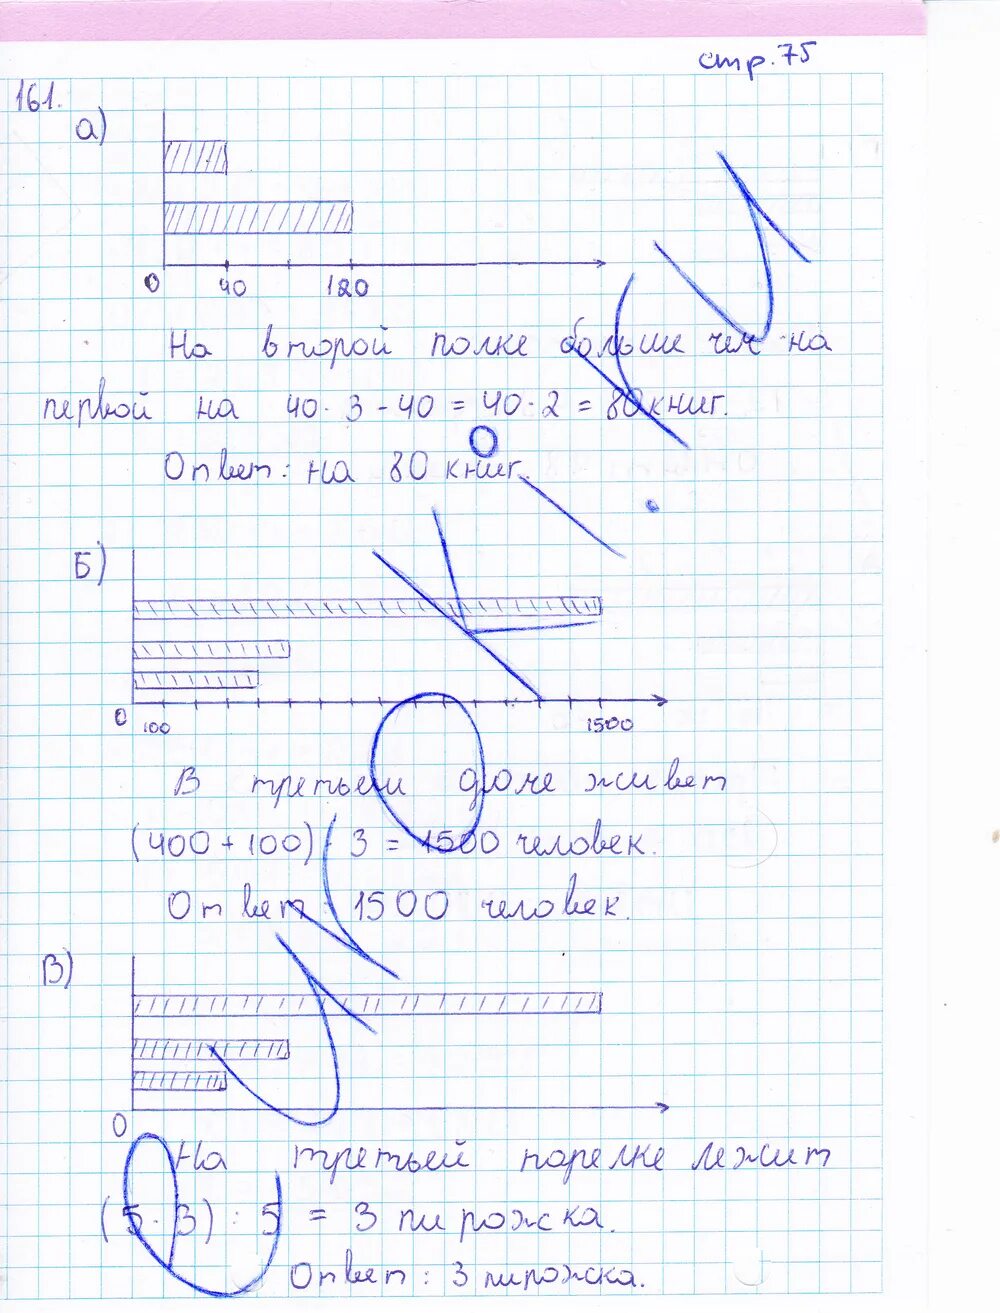 стр. 75
161.
а)
0 40 120
На второй полке больше чем на
первой на 40 · 3 - 40 = 40 · 2 = 80 книг.
Ответ: на 80 книг.
Б)
0 100 1500
В третьем доме живет
(400 + 100) · 3 = 1500 человек.
Ответ: 1500 человек.
В)
0
На третьей тарелке лежит
(5 · 3) : 5 = 3 пирожка.
Ответ: 3 пирожка.